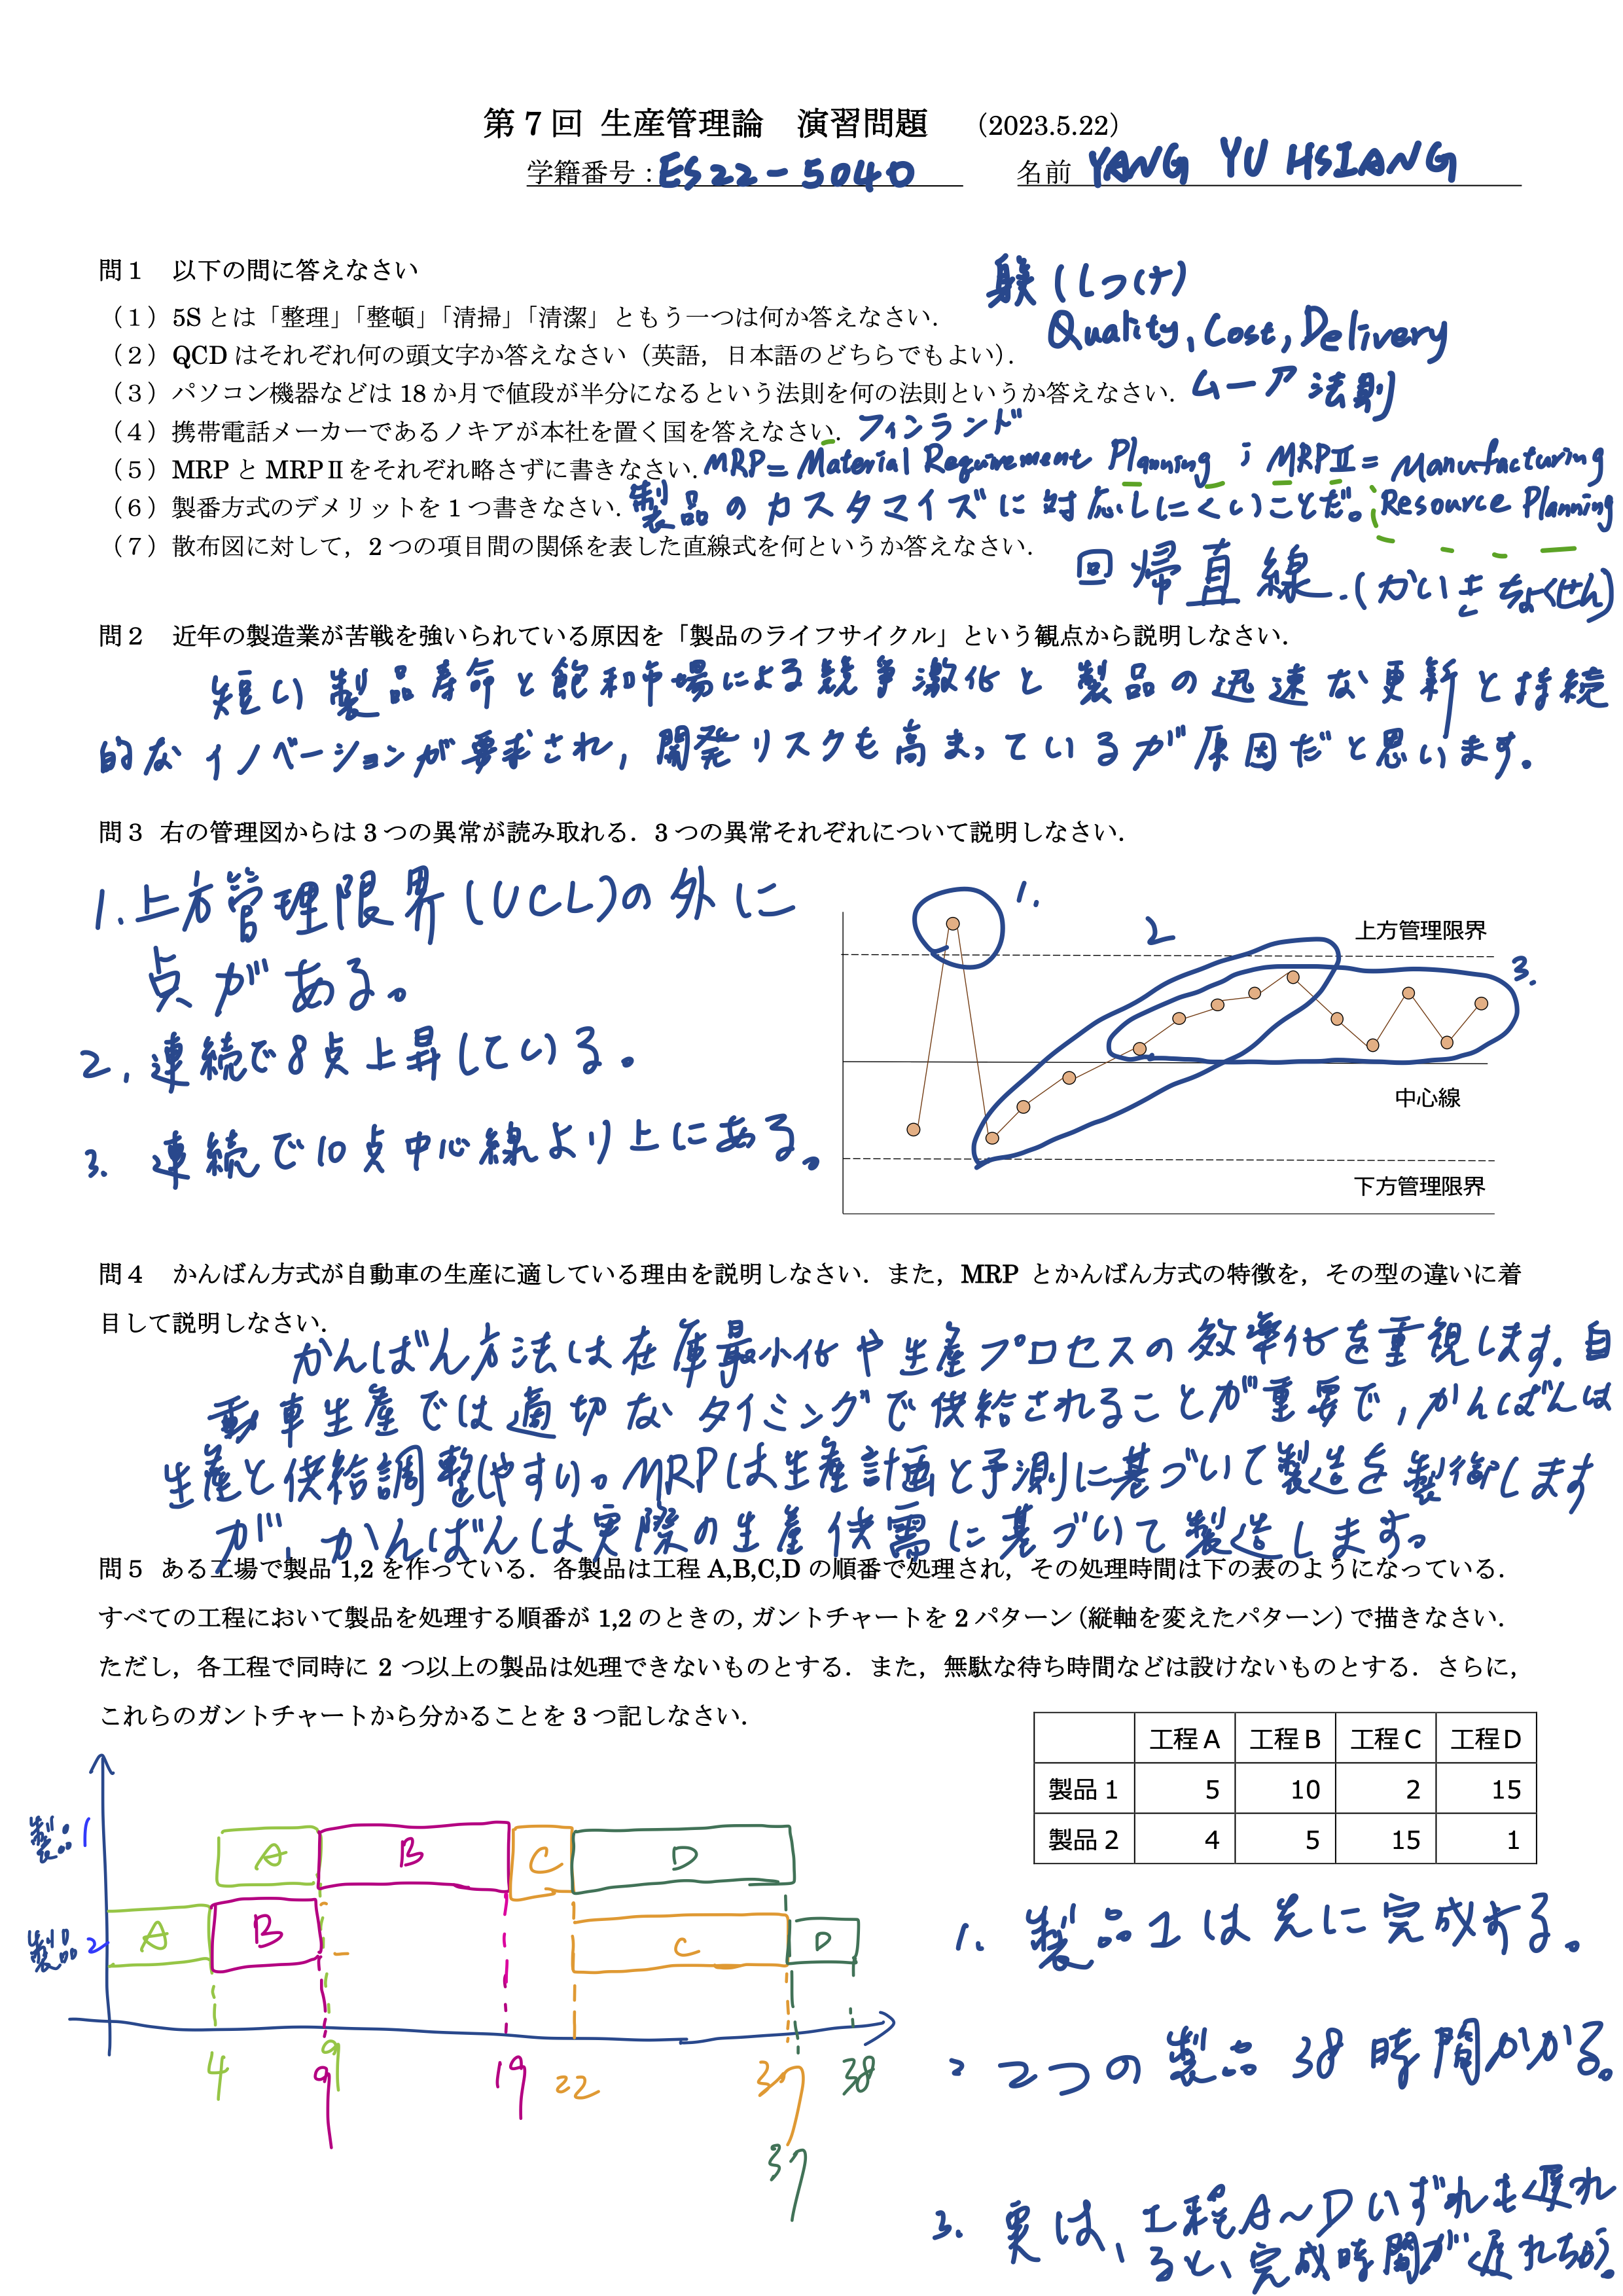 第7回 生産管理論 演習問題 (2023.5.22)
学籍番号:ES22-5040 名前 YANG YU HSIANG
問1 以下の問に答えなさい
(1)5Sとは「整理」「整頓」「清掃」「清潔」ともう一つは何か答えなさい. 躾(しつけ)
(2)QCDはそれぞれ何の頭文字か答えなさい(英語,日本語のどちらでもよい). Quality, Cost, Delivery
(3)パソコン機器などは18か月で値段が半分になるという法則を何の法則というか答えなさい. ムーア法則
(4)携帯電話メーカーであるノキアが本社を置く国を答えなさい. フィンランド
(5)MRPとMRPⅡをそれぞれ略さずに書きなさい. MRP= Material Requirement Planning ; MRPⅡ= Manufacturing Resource Planning
(6)製番方式のデメリットを1つ書きなさい. 製品のカスタマイズに対応しにくいことだ。
(7)散布図に対して,2つの項目間の関係を表した直線式を何というか答えなさい. 回帰直線.(かいきちょくせん)
問2 近年の製造業が苦戦を強いられている原因を「製品のライフサイクル」という観点から説明しなさい.
短い製品寿命と飽和市場による競争激化と製品の迅速な更新と持続
的なイノベーションが要求され,開発リスクも高まっているが原因だと思います.
問3 右の管理図からは3つの異常が読み取れる.3つの異常それぞれについて説明しなさい.
1.上方管理限界(UCL)の外に
点がある。
2.連続で8点上昇している。
3. 連続で10点中心線より上にある。
1.
2
3.
上方管理限界
中心線
下方管理限界
問4 かんばん方式が自動車の生産に適している理由を説明しなさい.また,MRPとかんばん方式の特徴を,その型の違いに着
目して説明しなさい.
かんばん方法は在庫最小化や生産プロセスの効率化を重視します.自
動車生産では適切なタイミングで供給されることが重要で,かんばんは
生産と供給調整しやすい。MRPは生産計画と予測に基づいて製造を製御します
が、かんばんは実際の生産供需に基づいて製造します。
問5 ある工場で製品1,2を作っている.各製品は工程A,B,C,Dの順番で処理され,その処理時間は下の表のようになっている.
すべての工程において製品を処理する順番が1,2のときの,ガントチャートを2パターン(縦軸を変えたパターン)で描きなさい.
ただし,各工程で同時に2つ以上の製品は処理できないものとする.また,無駄な待ち時間などは設けないものとする.さらに,
これらのガントチャートから分かることを3つ記しなさい.
工程A 工程B 工程C 工程D
製品1 5 10 2 15
製品2 4 5 15 1
製品1 A B C D
製品2 A B C D
4 9 9 19 22 37 38
37
1. 製品1は先に完成する。
2 2つの製品38時間かかる。
3. 実は、工程A~Dいずれも遅れ
ると、完成時間が遅れちゃう.